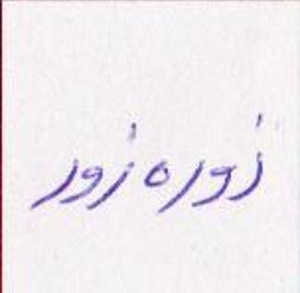 زوره زور